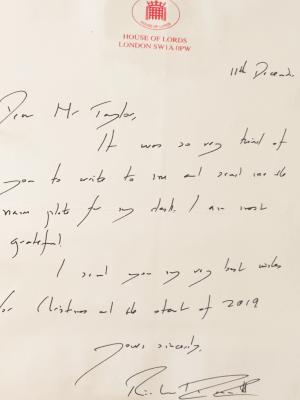 HOUSE OF LORDS
HOUSE OF LORDS
LONDON SW1A 0PW
11th Decemb
Dear Mr Taylor,
It was so very kind of
you to write to me and send me the
name plate for my desk. I am most
grateful.
I send you my very best wishes
for Christmas and the start of 2019
Yours sincerely,